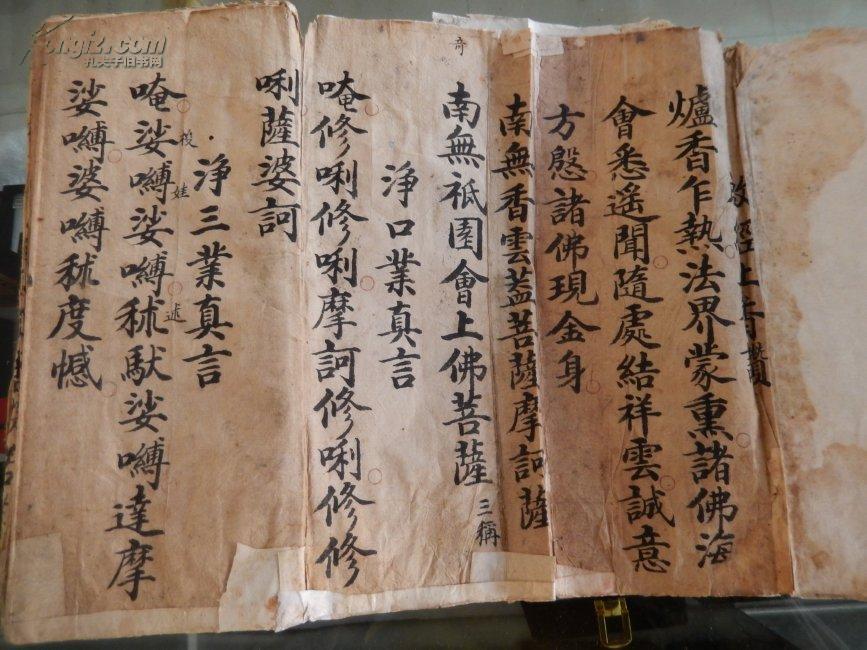 經上香讚
爐香乍熱法界蒙熏諸佛海
會悉遥聞隨處結祥雲誠意
方慇諸佛現金身
南無香雲盖菩薩摩訶薩
南無祇園會上佛菩薩 三稱
奇
淨口業真言
唵修唎修唎摩訶修唎修修
唎薩婆訶
淨三業真言
唵娑嚩娑嚩秫馱娑嚩達摩
梭 娃 述
娑嚩娑嚩秫度憾
Kongfz.com
孔夫子旧书网